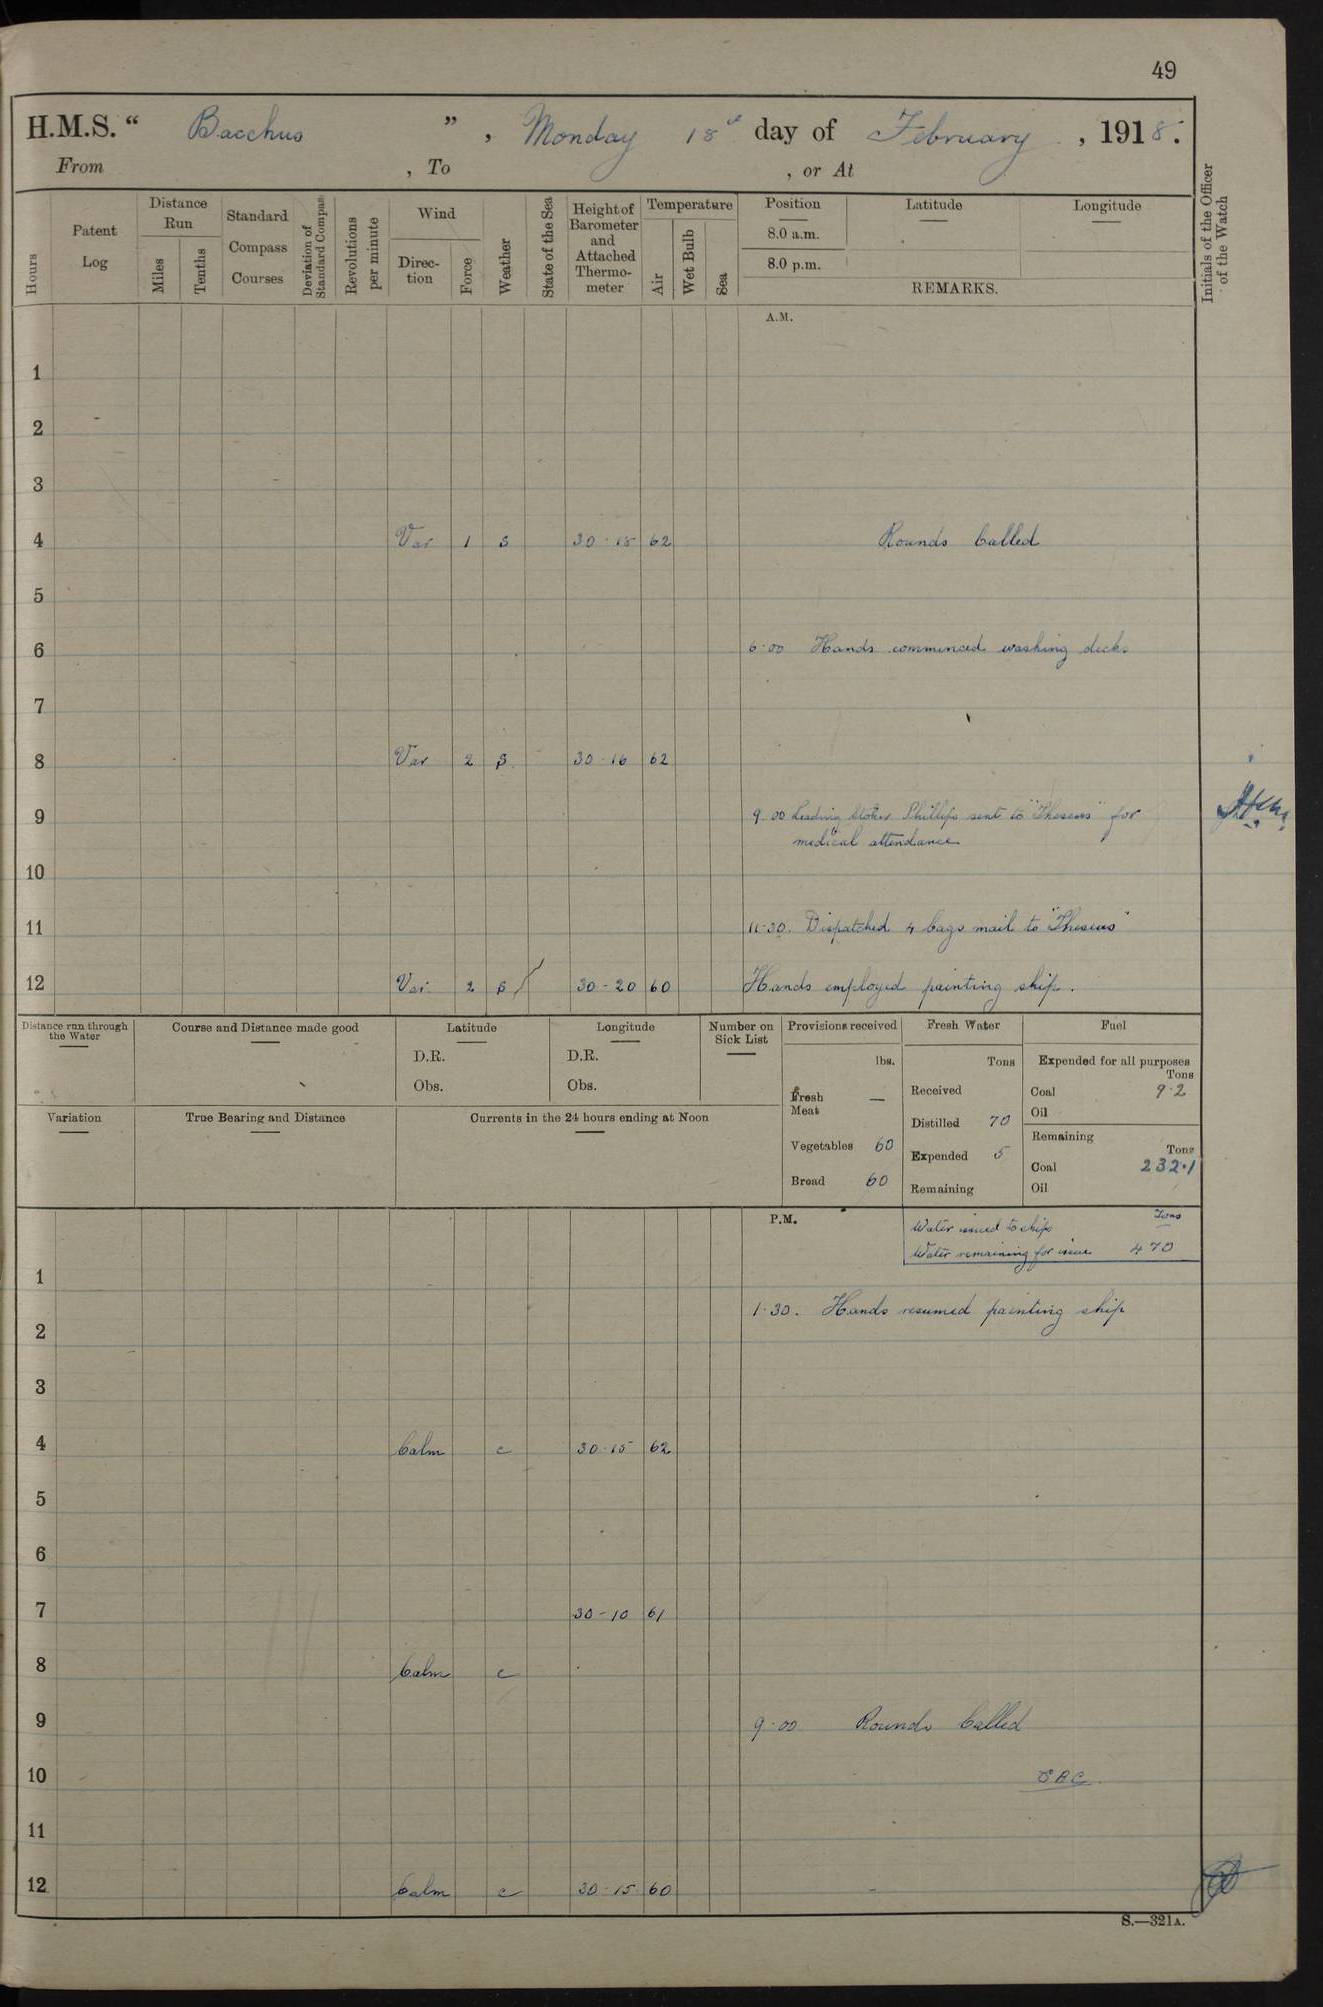 49
H.M.S. “ Bacchus ” , Monday 18th day of February , 1918.
From , To , or At
Hours
Patent Log
Distance Run
Miles
Tenths
Standard Compass Courses
Deviation of Standard Compass
Revolutions per minute
Wind
Direction
Force
Weather
State of the Sea
Height of Barometer and Attached Thermometer
Temperature
Air
Wet Bulb
Sea
Position Latitude Longitude
8.0 a.m.
8.0 p.m.
REMARKS.
Initials of the Officer of the Watch
A.M.
1
2
3
4 Var 1 30-15 62 Rounds Called
5
6 6-00 Hands commenced washing decks
7
8 Var 2 30-16 62
9 9-00 Leading Stoker Phillips sent to "Theseus" for
medical attendance
10
11 11-30. Dispatched 4 bags mail to "Theseus"
12 Var. 2 30-20 60 Hands employed painting ship.
Distance run through the Water
Course and Distance made good
Latitude
D.R.
Obs.
Longitude
D.R.
Obs.
Number on Sick List
Provisions received
lbs.
Fresh Meat —
Vegetables 60
Bread 60
Fresh Water
Tons
Received
Distilled 70
Expended 5
Remaining
Fuel
Expended for all purposes
Tons
Coal 9.2
Oil
Remaining
Tons
Coal 232.1
Oil
Variation
True Bearing and Distance
Currents in the 24 hours ending at Noon
P.M.
Tons
Water issued to ships
Water remaining for issue 470
1
1-30. Hands resumed painting ship
2
3
4 Calm c 30-15 62
5
6
7 30-10 61
8 Calm c
9 9-00 Rounds Called
10
11
12 Calm c 30-15 60
S.—321A.